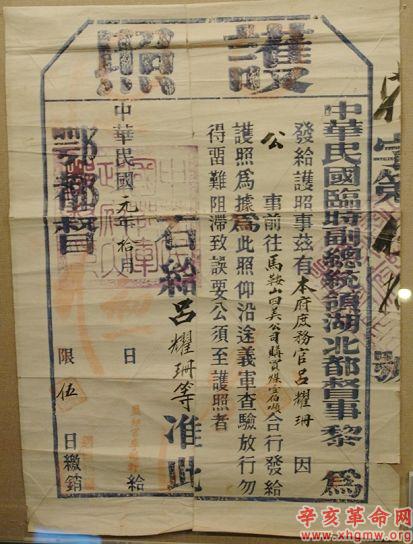 護照
中華民國臨時副總統領湖北都督事黎 為
發給護照事茲有本府庶務官呂耀珊 因
公 事前往馬鞍山四美公司購買煤壹佰噸合行發給
護照為據為此照仰沿途義軍查驗放行勿
得留難阻滯致誤要公須至護照者
右給呂耀珊等准此
中華民國元年拾月 日 給
鄂都督 限伍日繳銷
字第 號
辛亥革命网
www.xhgmw.org